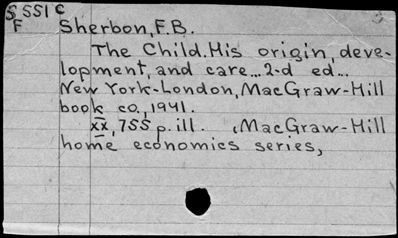 S 551 c
F Sherbon, F.B.
The Child. His origin, deve-
lopment, and care... 2-d ed...
New York-London, MacGraw-Hill
book co., 1941.
xx, 755 p. ill. (MacGraw-Hill
home economics series,